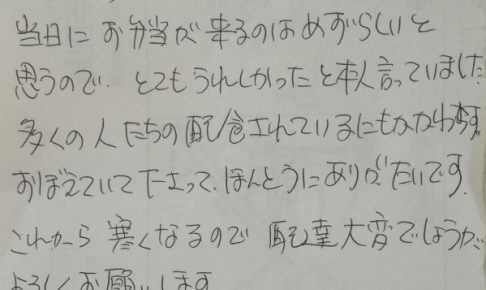 当日にお弁当が来るのはめずらしいと
思うので、とてもうれしかったと本人言っていました
多くの人たちの配食されているにもかかわらず
おぼえていて下さって、ほんとうにありがたいです。
これから寒くなるので 配達大変でしょうが、
よろしくお願いします